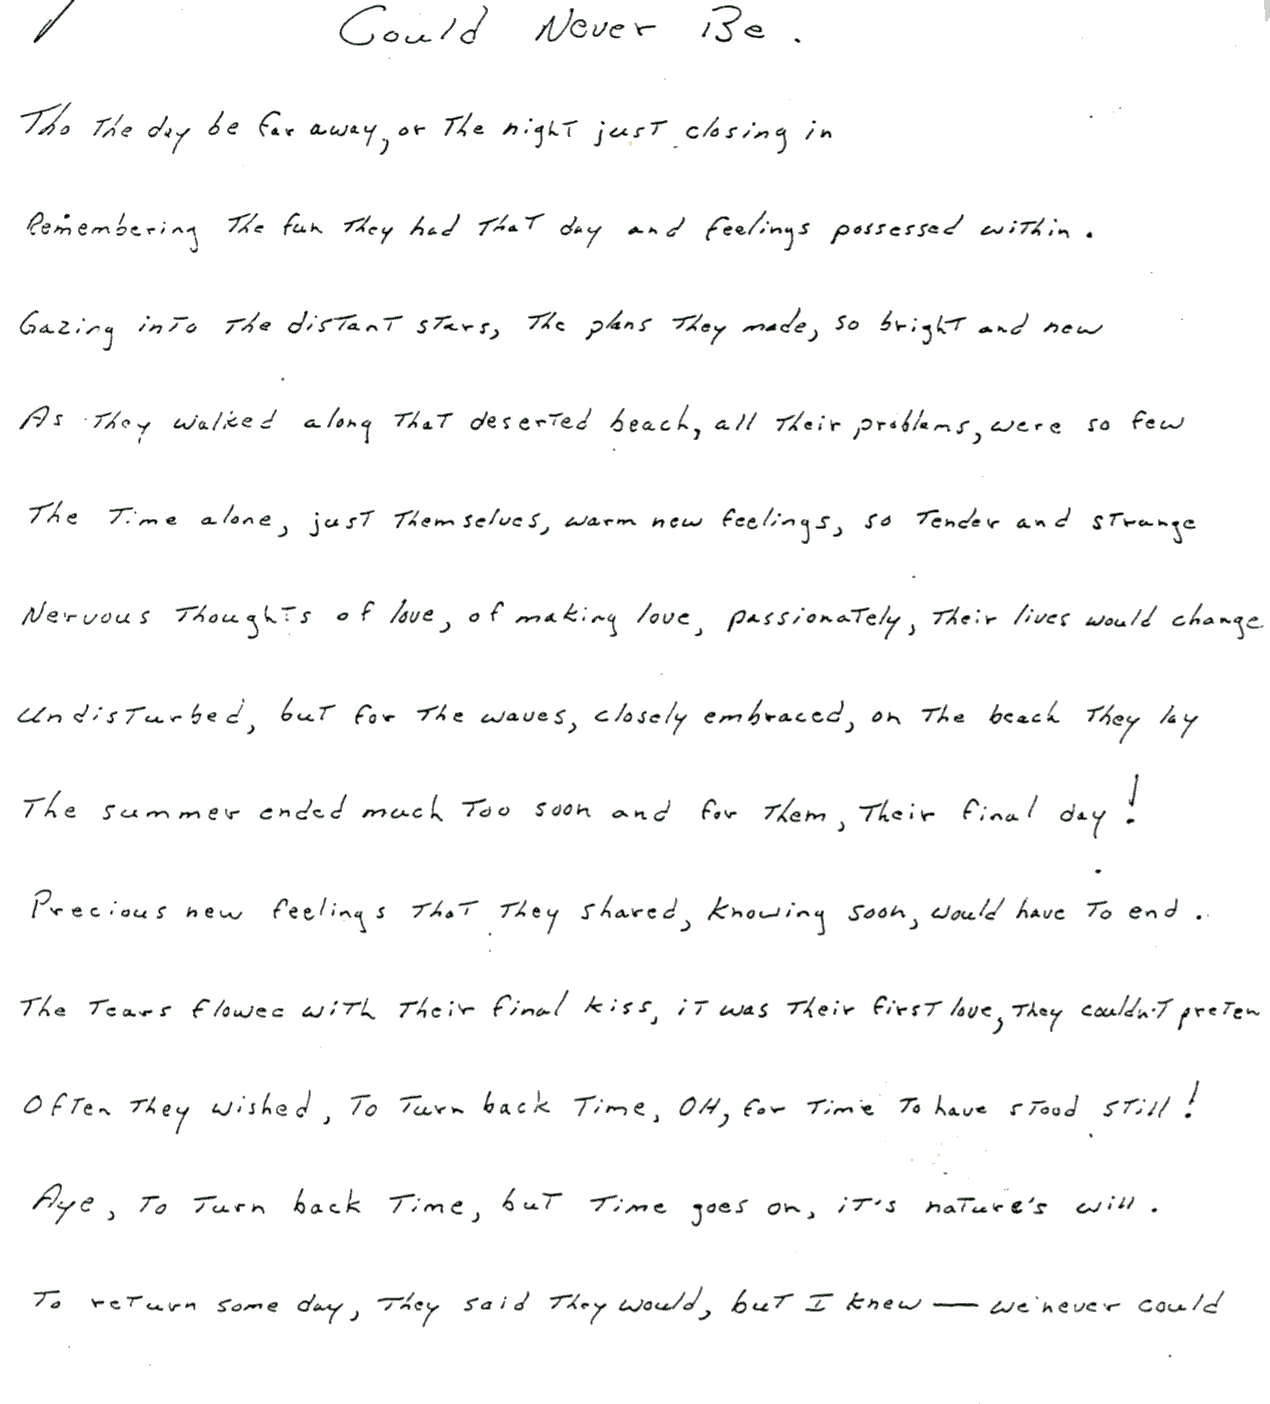 Could Never Be.
Tho the day be far away, or the night just closing in
Remembering the fun they had that day and feelings possessed within.
Gazing into the distant stars, the plans they made, so bright and new
As they walked along that deserted beach, all their problems, were so few
The time alone, just themselves, warm new feelings, so tender and strange
Nervous thoughts of love, of making love, passionately, their lives would change
Undisturbed, but for the waves, closely embraced, on the beach they lay
The summer ended much too soon and for them, their final day!
Precious new feelings that they shared, knowing soon, would have to end.
The tears flowed with their final kiss, it was their first love, they couldn't preten
Often they wished, to turn back time, OH, for time to have stood still!
Aye, to turn back time, but time goes on, it's nature's will.
To return some day, they said they would, but I knew — we never could